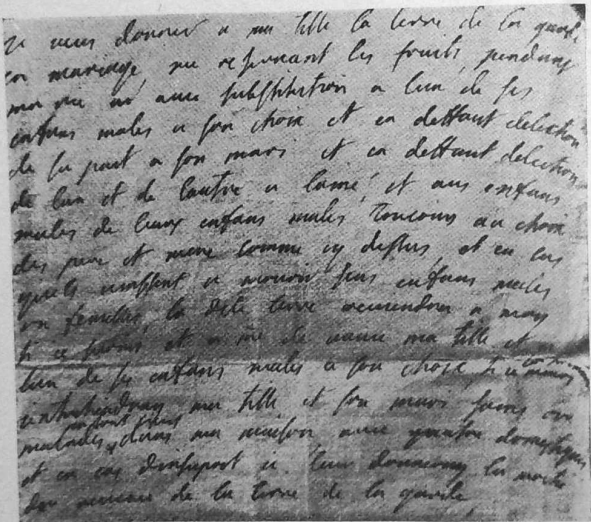 Je veus donner a ma fille la terre de la garde
en mariage, me reservant les fruits pendant
ma vie avec substitution a lun de ses
enfans males a son choix et en deffaut delection
de sa part a son mary et en deffaut delection
de lun et de lautre a lainé et aus enfans
males de leurs enfans males toucours au choix
des pere et mere comme cy dessus, et en cas
quils vinssent a mourir sans enfans males
ou femelles la dite terre reviendra a moy
si je et a me de ma fille et
lun de ses enfans males a son choix,
ma fille et son mary sains ou
malades, dans ma maison avec quatre domestiques
et en cas dinsuport je leur donneray la moitié
du revenu de la terre de la garde